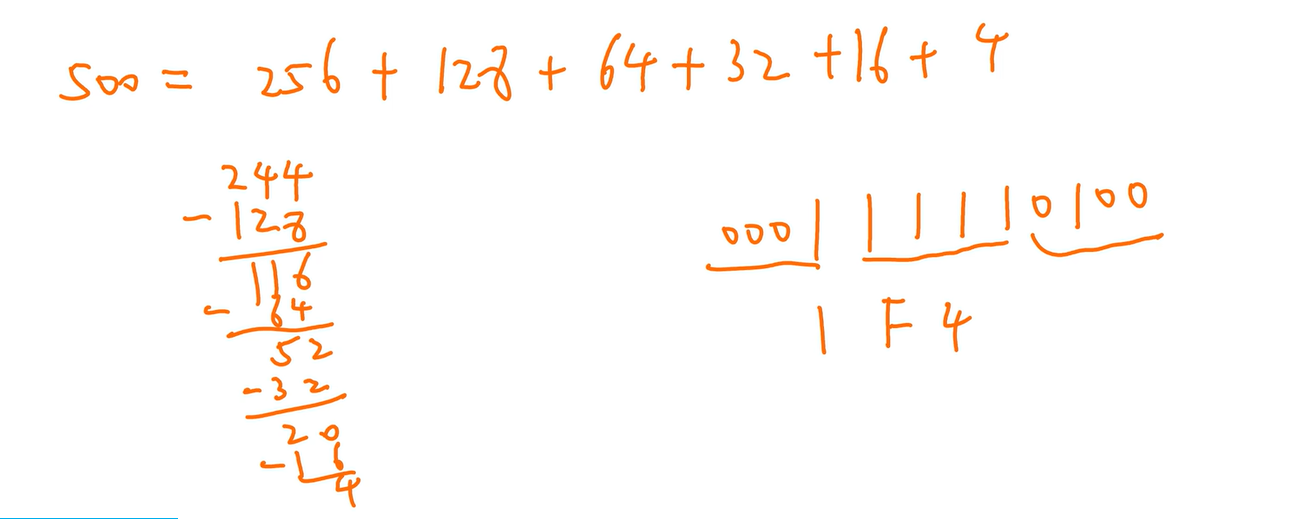 500 = 256 + 128 + 64 + 32 + 16 + 4
244
- 128
116
- 64
52
- 32
20
- 16
4
0001 1111 0100
1 F 4